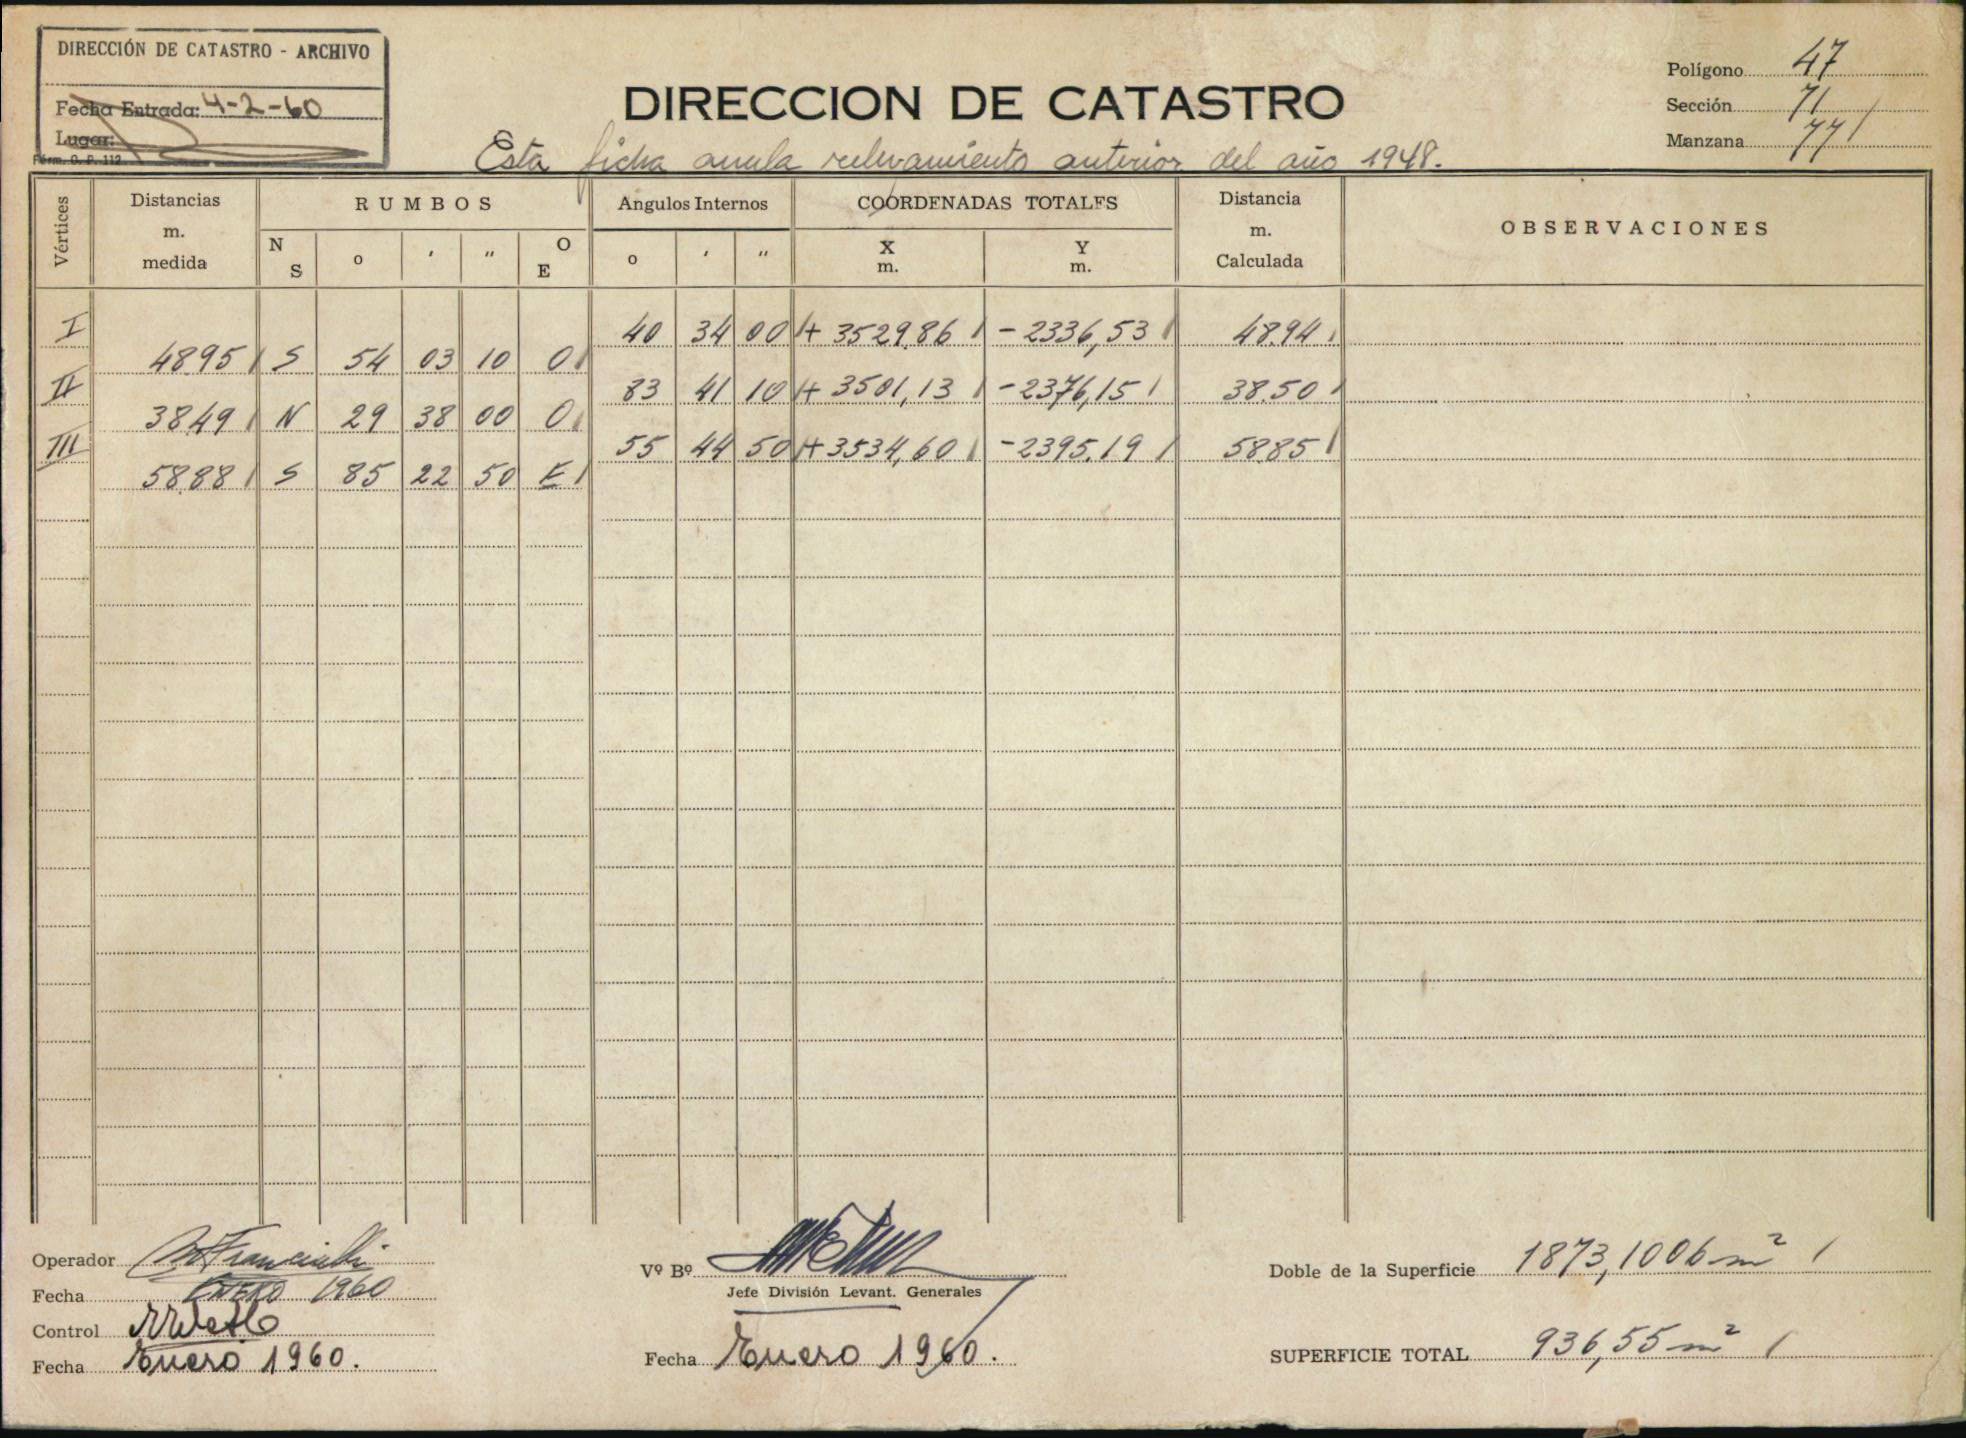 DIRECCIÓN DE CATASTRO - ARCHIVO
Fecha Entrada: 4-2-60
Lugar:
Form. O. P. 112
DIRECCION DE CATASTRO
Esta ficha anula relevamiento anterior del año 1948.
Polígono 47
Sección 71
Manzana 77
Vértices
Distancias
m.
medida
RUMBOS
N S
o
'
"
O E
Angulos Internos
o
'
"
COORDENADAS TOTALES
X
m.
Y
m.
Distancia
m.
Calculada
OBSERVACIONES
I 40 34 00 + 3529.86 - 2336,53 48.94
48.95 S 54 03 10 O
II 83 41 10 + 3501,13 - 2376,15 38.50
38.49 N 29 38 00 O
III 55 44 50 + 3534,60 - 2395.19 58.85
58.88 S 85 22 50 E
Operador
Fecha ENERO 1960
Control
Fecha Enero 1960.
Vº Bº
Jefe División Levant. Generales
Fecha Enero 1960.
Doble de la Superficie 1873,1006 m²
SUPERFICIE TOTAL 936,55 m²